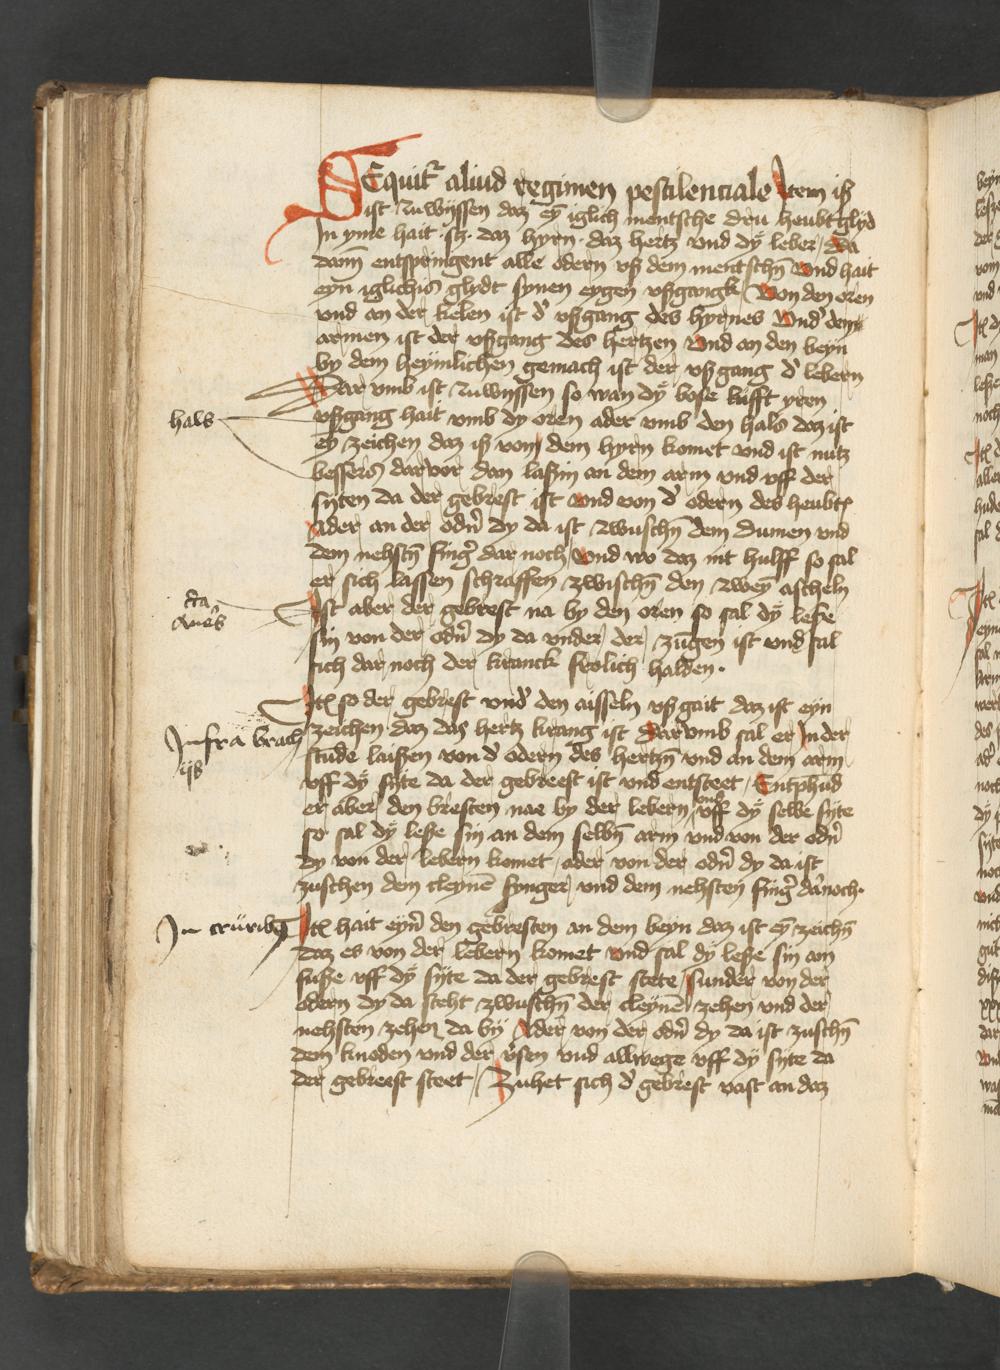 SEquit᷑ aliud regimen pestilenciale Item iß
ist zu wijssen daz ey̅ iglich mentsche dru heubtglyd
In yme hait · sz · daz hyrn · daz hertz vnd dÿ leber / da
dann entspringent alle odern vß dem mentsch̅n vnd hait
eyn iglichis glydt synen eygen vßgangk / Von den oren
vnd an der kelen ist d' vßgang des hyrnes Vnd' dem
armen ist der vßgang des hertzen vnd an den beyn
by dem heymlichen gemach ist der vßgang d' lebern
Dar vmb ist zu wyssen so wan dÿ bose lufft yren
hals
vßgang hait vmb dy oren ader vmb den hals daz ist
ey̅ zeichen daz iß vom dem hyrn komet vnd ist nutz
bessers dar vor dan laßin an dem arm vnd vff der
syten da der gebrest ist vnd von d' odern des heubts
Ader an der od̅n dy da ist zwusch̅n dem dumen vnd
dem nehst̅n fing' dar noch / vnd wo daz nit hulff so sal
er sich lassen schraffen zwisch̅n den zwey̅ ascheln
Ist aber der gebrest na by den oren so sal dÿ leße
sin von der od̅n dy da vnder der zungen ist vnd sal
sich dar noch der kranck frolich halden ·
Itē so der gebrest vnd' den aisseln vß gait daz ist eyn
zeichen daz das hertz krang ist Dar vmb sal er In der
Infra brach
ijs
stude laißen von d' odern des hertz̅n vnd an dem arm
vff dÿ syte da der gebreest ist vnd entsteet / Entphud
er aber den bresten nae by der lebern vff dÿ selbe syte
so sal dÿ leße sin an dem selb̅n arm vnd von der od̅n
dy von der lebern komet ader von der od̅n dy da ist
zuschen dem cleyne̅ fynger vnd dem nehsten fing' da'noch ·
In crurib9
Itē hait eyn̅ den gebresten an dem beyn daz ist ey̅ zeich̅n
daz es von der lebern komet vnd sal dÿ leße sin am
fuße vff dÿ syte da der gebrest stete / sunder von der
odern dy da steht zwusch̅n der cleyne̅ zehen vnd der
nehsten zehen da bÿ Ader von der od̅n dy da ist zusch̅n
dem knoden vnd der v'sen vnd allwege vff dÿ syte da
der gebreest steet / Zuhet sich d' gebrest vast an daz